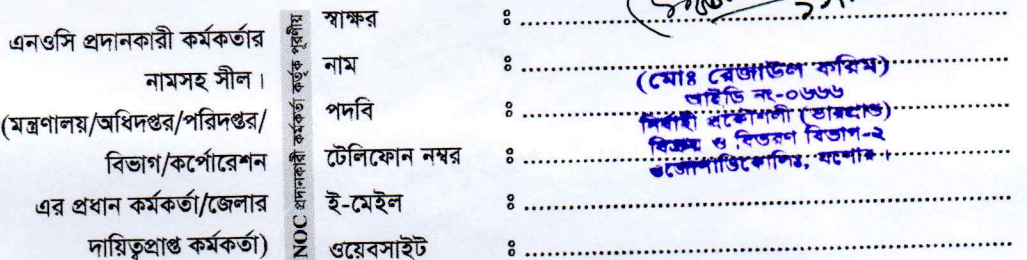 এনওসি প্রদানকারী কর্মকর্তার
নামসহ সীল।
(মন্ত্রণালয়/অধিদপ্তর/পরিদপ্তর/
বিভাগ/কর্পোরেশন
এর প্রধান কর্মকর্তা/জেলার
দায়িত্বপ্রাপ্ত কর্মকর্তা)
NOC প্রদানকারী কর্মকর্তা কর্তৃক পূরণীয়
স্বাক্ষর ঃ
নাম ঃ
পদবি ঃ
টেলিফোন নম্বর ঃ
ই-মেইল ঃ
ওয়েবসাইট ঃ
(মোঃ রেজাউল করিম)
আইডি নং-০৬৬৬
নির্বাহী প্রকৌশলী (ভারপ্রাপ্ত)
বিক্রয় ও বিতরণ বিভাগ-২
ওজোপাডিকোলিঃ, যশোর।